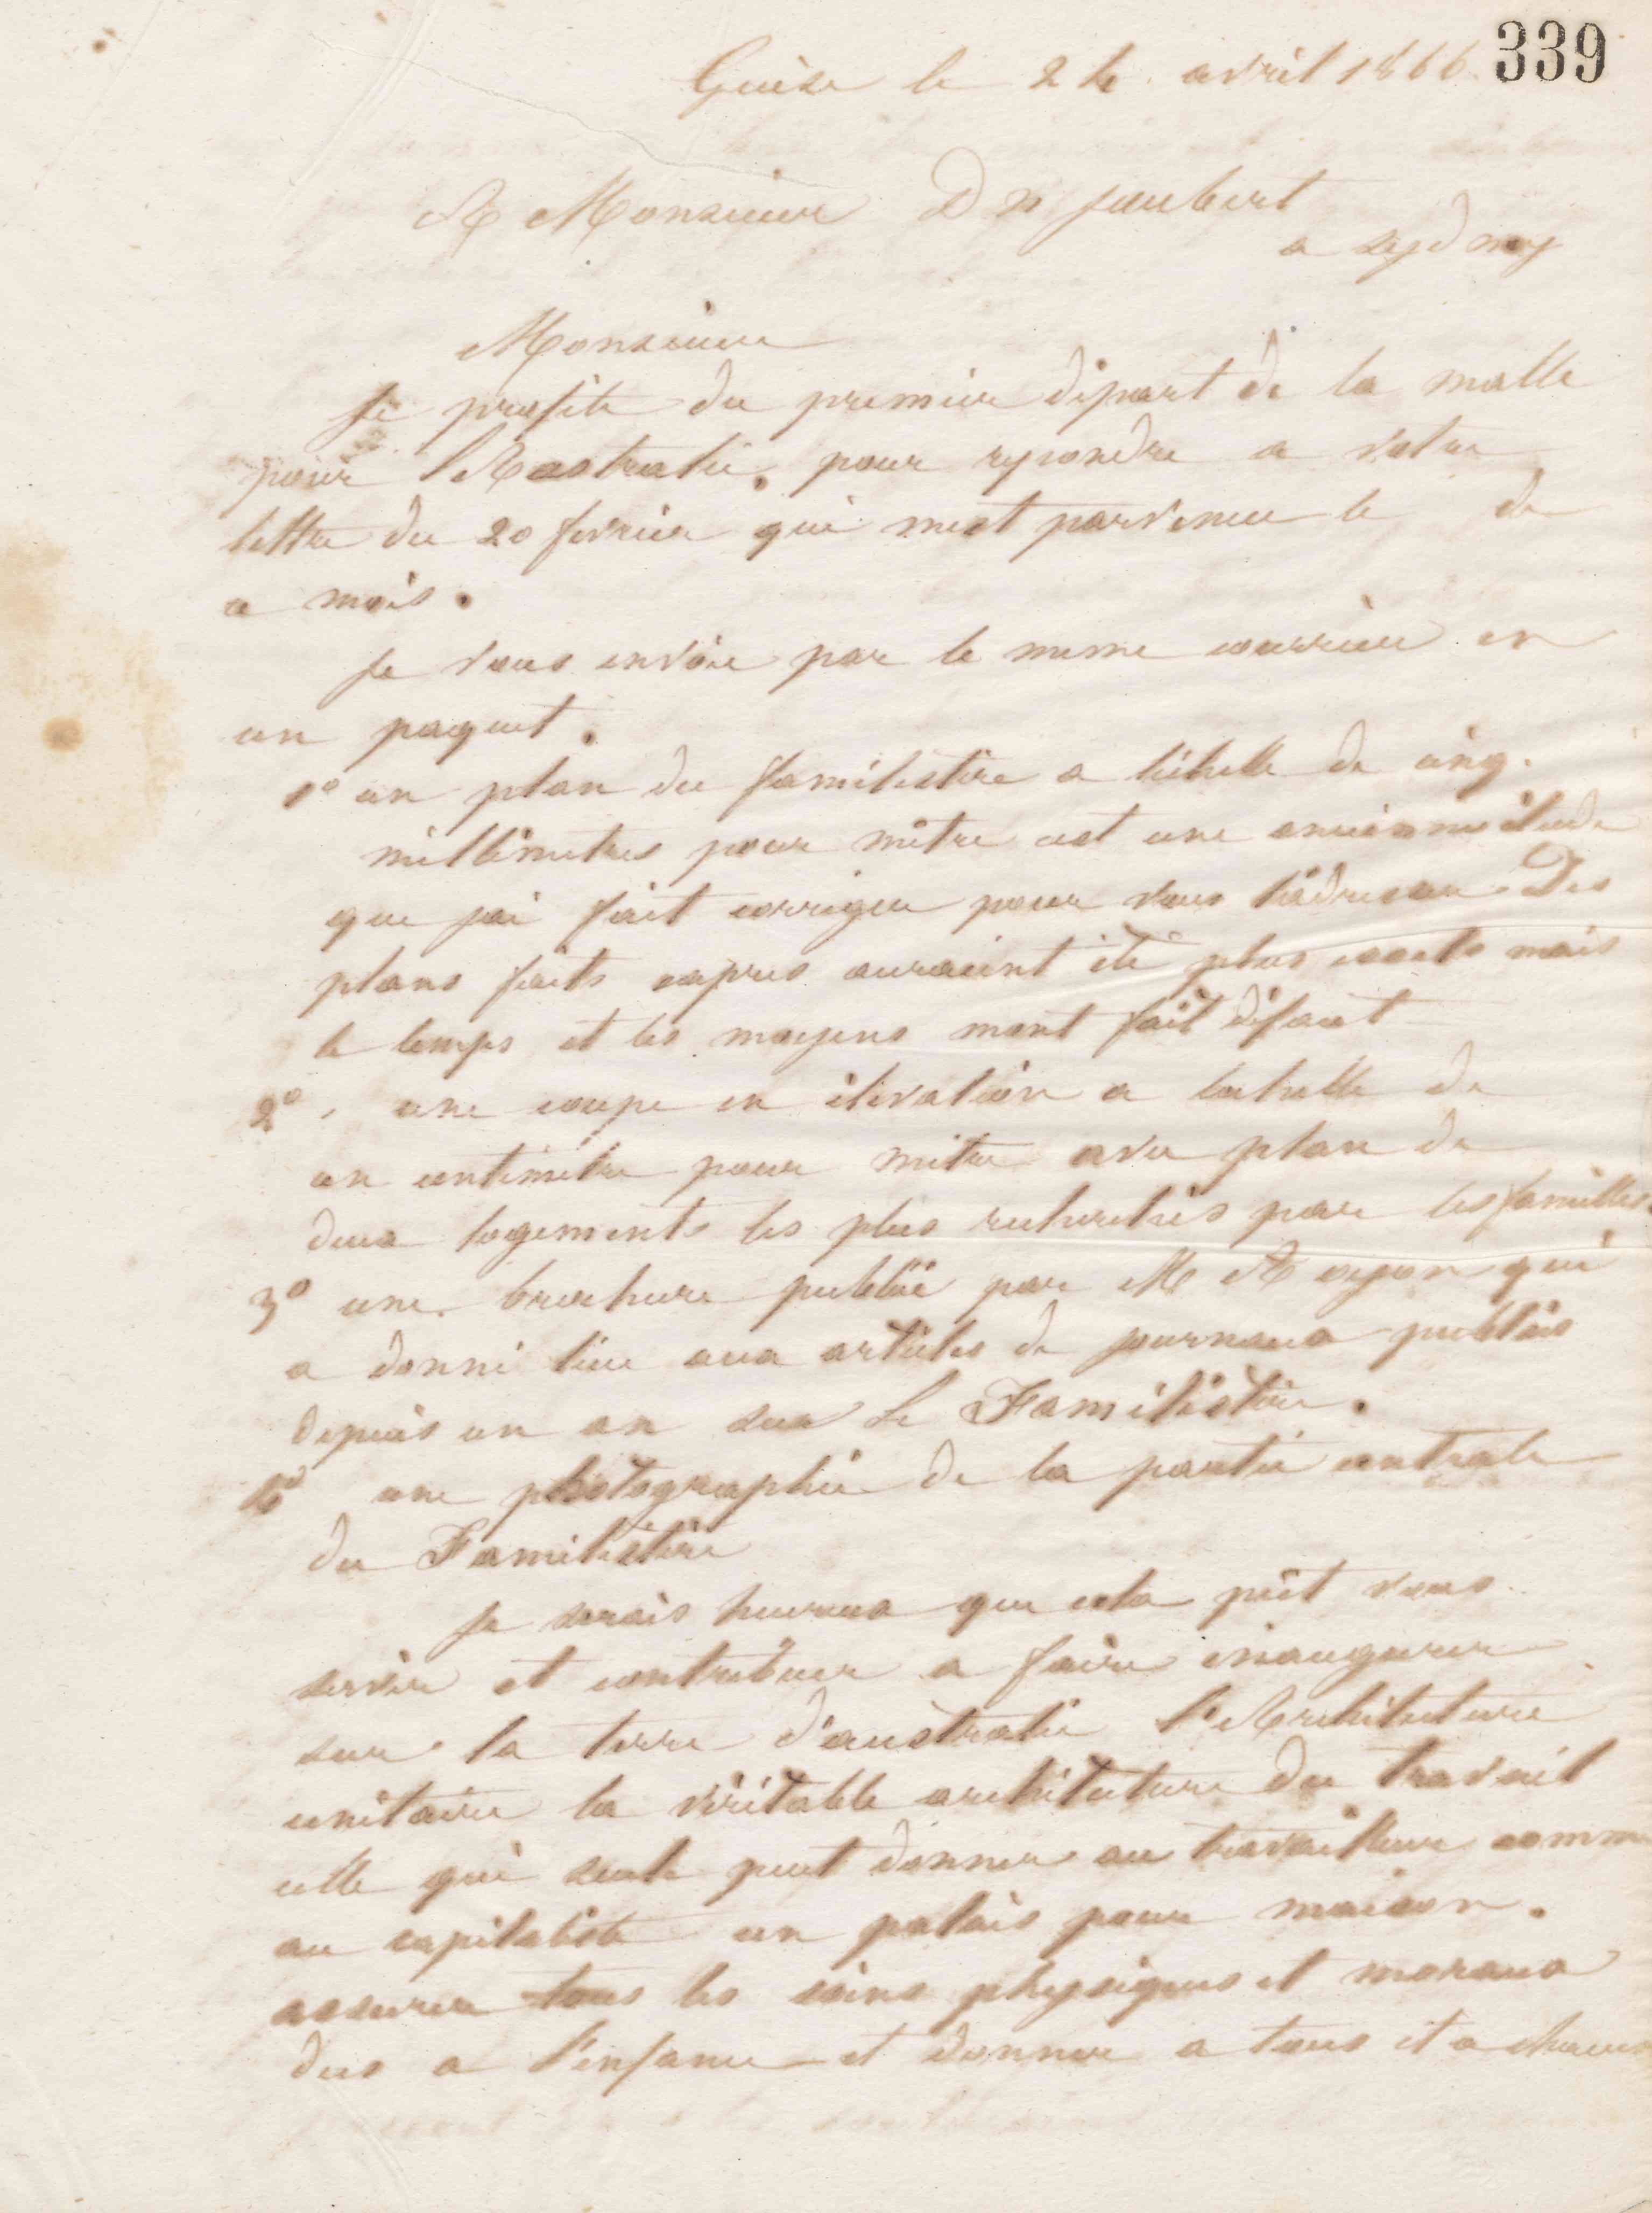 339
Guise le 24 avril 1866
A Monsieur Dr Joubert
a sydney
Monsieur
Je profite du premier départ de la malle
pour l'Aastralie, pour repondre a votre
lettre du 20 fevrier qui mest parvenue le de
ce mois.
Je vous envoie par le meme courrier en
un paquet.
1° un plan du familistère a léchelle de cinq
millimetres pour mètre cest une ancienne étude
que jai fait corriger pour vous ladresser Des
plans faits exprès auraient été plus exacts mais
le temps et les moyens mont fait défaut
2° une coupe en élévation a lechelle de
un centimètre pour mètre avec plan de
deux logements les plus recherchés par les familles.
3° une brochure publiée par M A oyon qui
a donné lieu aux articles de journaux publiés
depuis un an sur Le Familistère.
4° une photographie de la partie centrale
du Familistère
Je serais heureux que cela pût vous
servir et contribuer a faire inaugurer
sur la terre d'australie l'Architecture
unitaire la véritable architecture du travail
celle qui seule peut donner au travailleur comme
au capitaliste un palais pour maison.
assurer tous les soins physiques et moraux
dus a l'enfance et donner a tous et a chacun